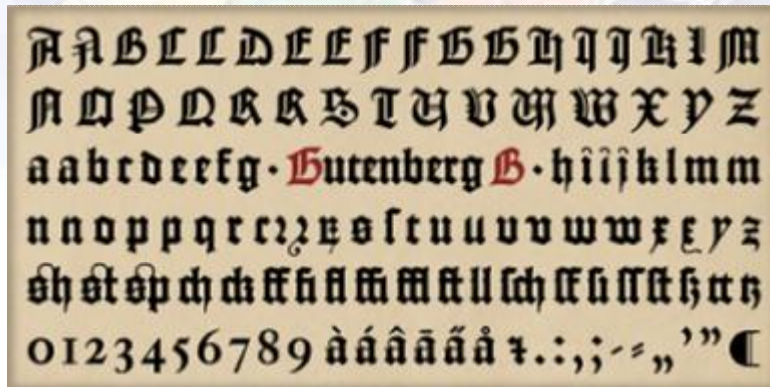 A A B C C D E E F F G G H I J K I M
N O P Q R R S T U V W W X Y Z
a a b c d e e f g · Gutenberg B · h î i ĵ k l m m
n n o p p q r r s ſ t u u v v w w x y z
sh st sp ch ck ff fi fl ffi ffl ft ll ſch ſſ ſi ſſ ſt tt tz
0 1 2 3 4 5 6 7 8 9 à á â ā a̋ å . : , ; - „ ’ ” ¶